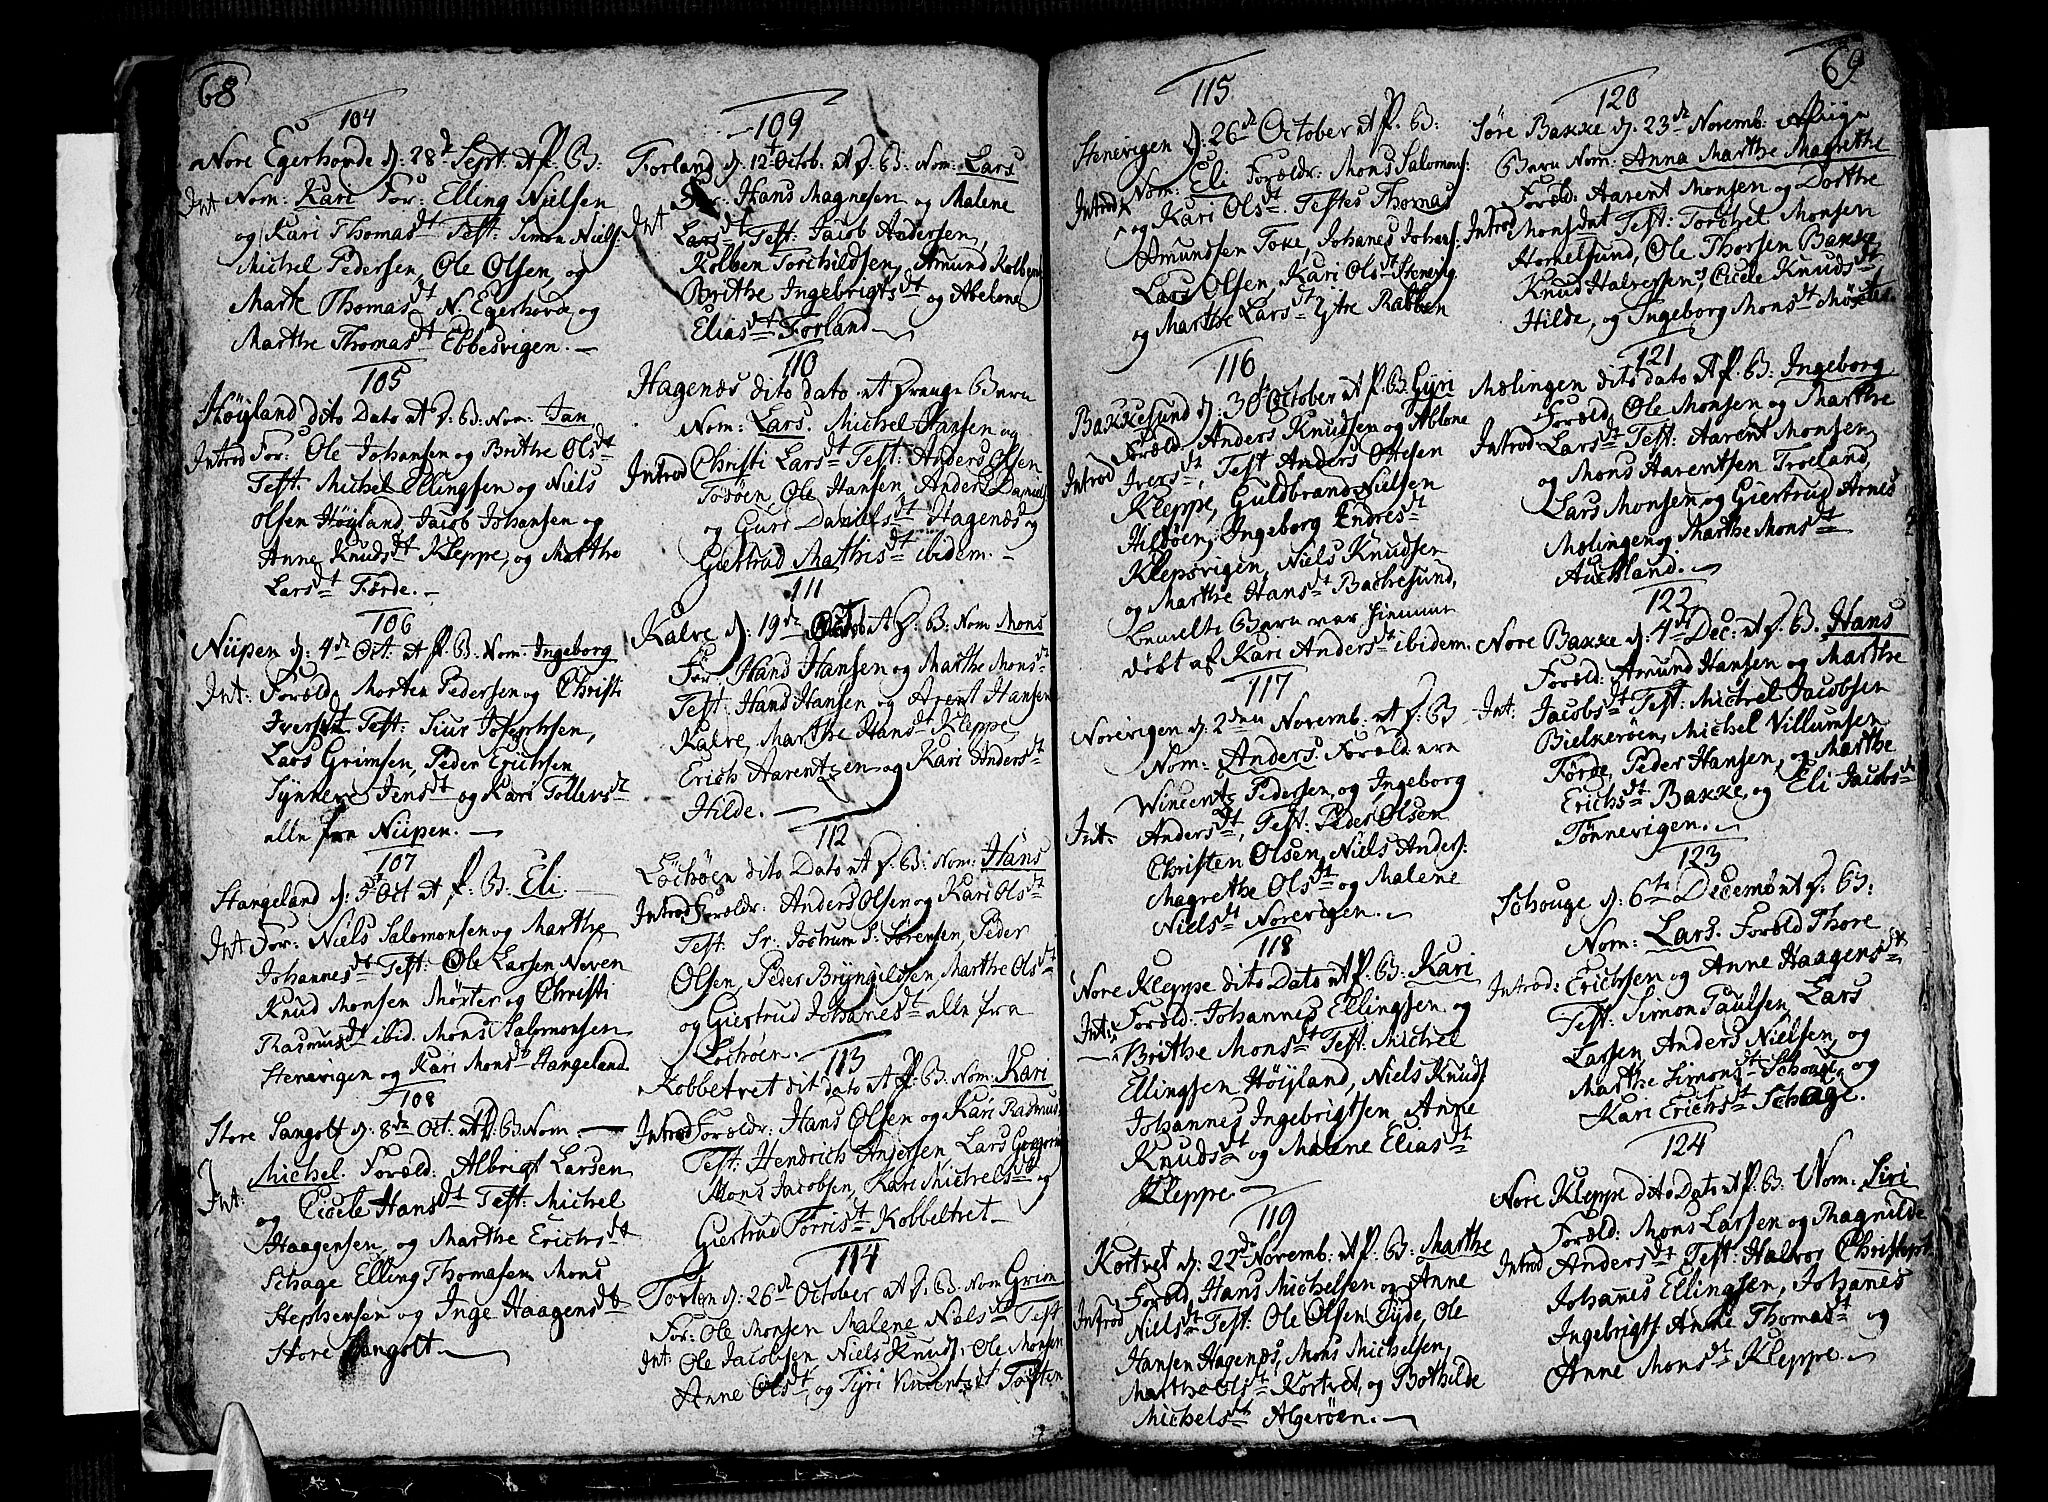 68
104
Nore Egerhovde d: 28dt Sept. et P. B:
Int Nom: Kari For: Elling Nielsen
og Kari Thomasdt Test: Simon Niels:
Michel Pedersen, Ole Olsen, og
Marte Thomasdt N. Egerhovde, og
Marthe Thomasdt Ebbesvigen.
105
Høigland dito Dato et P. B: Nom: Jan
Introd For: Ole Johansen og Brithe Olsdt
Test: Michel Ellingsen og Niels
Olsen Høigland, Jacob Johansen og
Anne Knudsdt Kleppe, og Marthe
Larsdt Førde.
106
Niipen d: 4de Oct: et P. B: Nom: Ingeborg
Int: Foræld: Morten Pedersen og Christi
Iversdt Test: Siur Josephsen,
Lars Grimsen, Peder Erichsen
Synneve Jensdt og Kari Tollevsdt
alle fra Niipen.
107
Hangeland d: 5dt Oct et P. B. Eli
Int For: Niels Salomonsen og Marthe
Johannesdt Test: Ole Larsen Neven
Knud Monsen Mørter og Christi
Rasmusdt ibid. Mons Salomonsen
Stenevigen og Kari Monsdt Hangeland
108
Store Sangolt d: 8de Oct. et P. B. Nom
Int: Michel. Foræld: Albrigt Larsen
og Cicele Hansdt Test: Michel
Haagensen, og Marthe Erichsdt
Schage Elling Thomasen Mons
Stephensen og Inge Haagensdt
Store Sangolt.
109
Forland d: 12t Octob. et P. B: Nom: Lars
For: Hans Magnesen og Malene
Int Larsdt, Test: Jacob Andersen,
Kolben Torchildsen, Amund Kolben
Brithe Ingebrigtsdt og Abelone
Eliasdt Forland
110
Hagenæs dito dato et Drenge Barn
Nom: Lars. Michel Hansen og
Introd Christi Larsdt Test: Anders Olsen
Tosøen, Ole Hansen, Anders Daniels
og Guri Danielsdt Hagenæs og
Giertrud Mathisdt ibidem.
111
Kalve d: 19de Octob et P. B: Nom Mons
For: Hans Hansen og Marthe Monsdt
Test: Hans Hansen og Arent Hansen
Kalve, Marthe Hansdt Kleppe,
Erich Aarentzen og Kari Andersdt
Hilde.
112
Lochøen dito Dato et P. B: Nom: Hans
Introd Foræld: Anders Olsen og Kari Olsdt
Test: Sr: Jochum S: Sørensen, Peder
Olsen, Peder Bryngildsen, Marthe Olsdt
og Giertrud Johanesdt alle fra
Lochøen.
113
Kobbetvet dit dato et P. B: Nom: Kari
Introd Forældr: Hans Olsen og Kari Rasmus
Test: Hendrich Andersen, Lars
Mons Jacobsen, Kari Michelsdt og
Giertrud Torrisdt Kobbeltvet
114
Torten d: 26de October et P. B. Nom Grim
For: Ole Monsen Malene Nielsdt Test
Int: Ole Jacobsen Niels Knuds: Ole Monsen
Anne Olsdt, og Tyri Vincentzdt Torten
69
115
Stenevigen d: 26de October et P. B:
Introd Nom: Eli Forældr: Mons Salomons:
og Kari Olsdt. Testes Thomas
Amundsen Toke, Johanes Johans:
Lars Olsen, Kari Olsdt Stenevig
og Marthe Larsdt Ytre Rabben
116
Bakkesund d: 30t October et P. B Gyri
Foræld: Anders Knudsen og Ablone
Introd Iversdt, Test Anders Ottesen
Kleppe, Guldbrand Nielsen
Hildøen, Ingeborg Endresdt
Klepsvigen, Niels Knudsen
og Marthe Hansdt Bachesund,
bemelte Barn var hiemme
døbt af Kari Andersdt ibidem.
117
Norevigen d: 2den Novemb: et P. B
Nom: Anders. Forældrene
Wincentz Pedersen, og Ingeborg
Int: Andersdt, Test: Peder Olsen
Christen Olsen, Niels Anders:
Magrethe Olsdt og Malene
Nielsdt Norevigen.
118
Nore Kleppe dito Dato et P. B: Kari
Int: Foræld: Johannes Ellingsen, og
Brithe Monsdt Test: Michel
Ellingsen Høigland, Niels Knuds
Johannes Ingebrigtsen, Anne
Knudsdt og Malene Eliasdt
Kleppe.
119
Kortvet d: 22de Novemb: et P. B: Marthe
Foræld, Hans Michelsen og Anne
Introd Nielsdt Test: Ole Olsen Eyde, Ole
Hansen Hagenæs, Mons Michelsen,
Marthe Olsdt Kortvet, og Bothilde
Michelsdt Algerøen.
120
Søre Bakke d: 23de Novemb: et Piige
Barn Nom: Anna Marthe Magrethe
Foræld: Aarent Monsen og Dorthe
Introd Monsdat Test: Torchel Monsen
Homelsund, Ole Thorsen Bakke
Knud Halversen, Cicele Knudsdt
Hilde, og Ingeborg Monsdt Mørter.
121
Mælingen dito dato et P. B: Ingeborg
Foræld, Ole Monsen og Marthe
Introd Larsdt Test: Aarent Monsen
og Mons Aarentsen Troeland,
Lars Monsen og Giertrud Arnes
Mælingen og Marthe Monsdt
Auchland.
122
Nore Bakke d: 4de Dec: et P. B. Hans
Foræld: Amund Hansen og Marthe
Int: Jacobsdt Test: Michel Jacobsen
Bielkerøen, Michel Villumsen
Førde, Peder Hansen, og Marthe
Erichsdt Bakke, og Eli Jacobsdt
Tønnevigen.
123
Schouge d: 6te Decemb et P. B:
Nom: Lars. Foræld Thore
Introd: Erichsen og Anne Haagensdt
Test: Simon Paulsen, Lars
Larsen, Anders Nielsen, og
Marthe Simonsdt Schoge, og
Kari Erichsdt Schage.
124
Nore Kleppe dito Dato et P. B. Nom: Siri
Foræld: Mons Larsen og Magnilde
Introd Andersdt Test: Halvor Christoph
Johanes Ellingsen, Johanes
Ingebrigts Anne Thomasdt og
Anne Monsdt Kleppe.